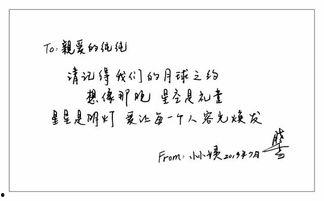 To: 親爱的纯纯
请记得我们的月球之约
想像那晚 星空是礼堂
星星是明灯 爱让每一个人容光焕发
From: 小小 2019年7月